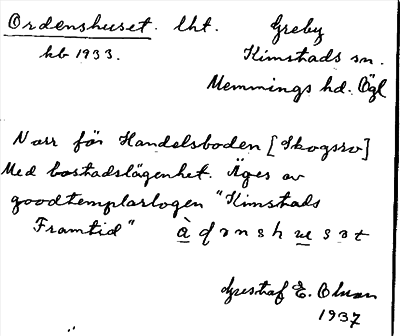 Ordenshuset. lht. Greby
hb 1933. Kimstads sn.
Memmings hd. Ögl
Norr för Handelsboden [Skogsro]
Med bostadslägenhet. Äges av
goodtemplarlogen "Kimstads
Framtid" à q ə n s h u s ə t
Gustaf E. Olsson
1937